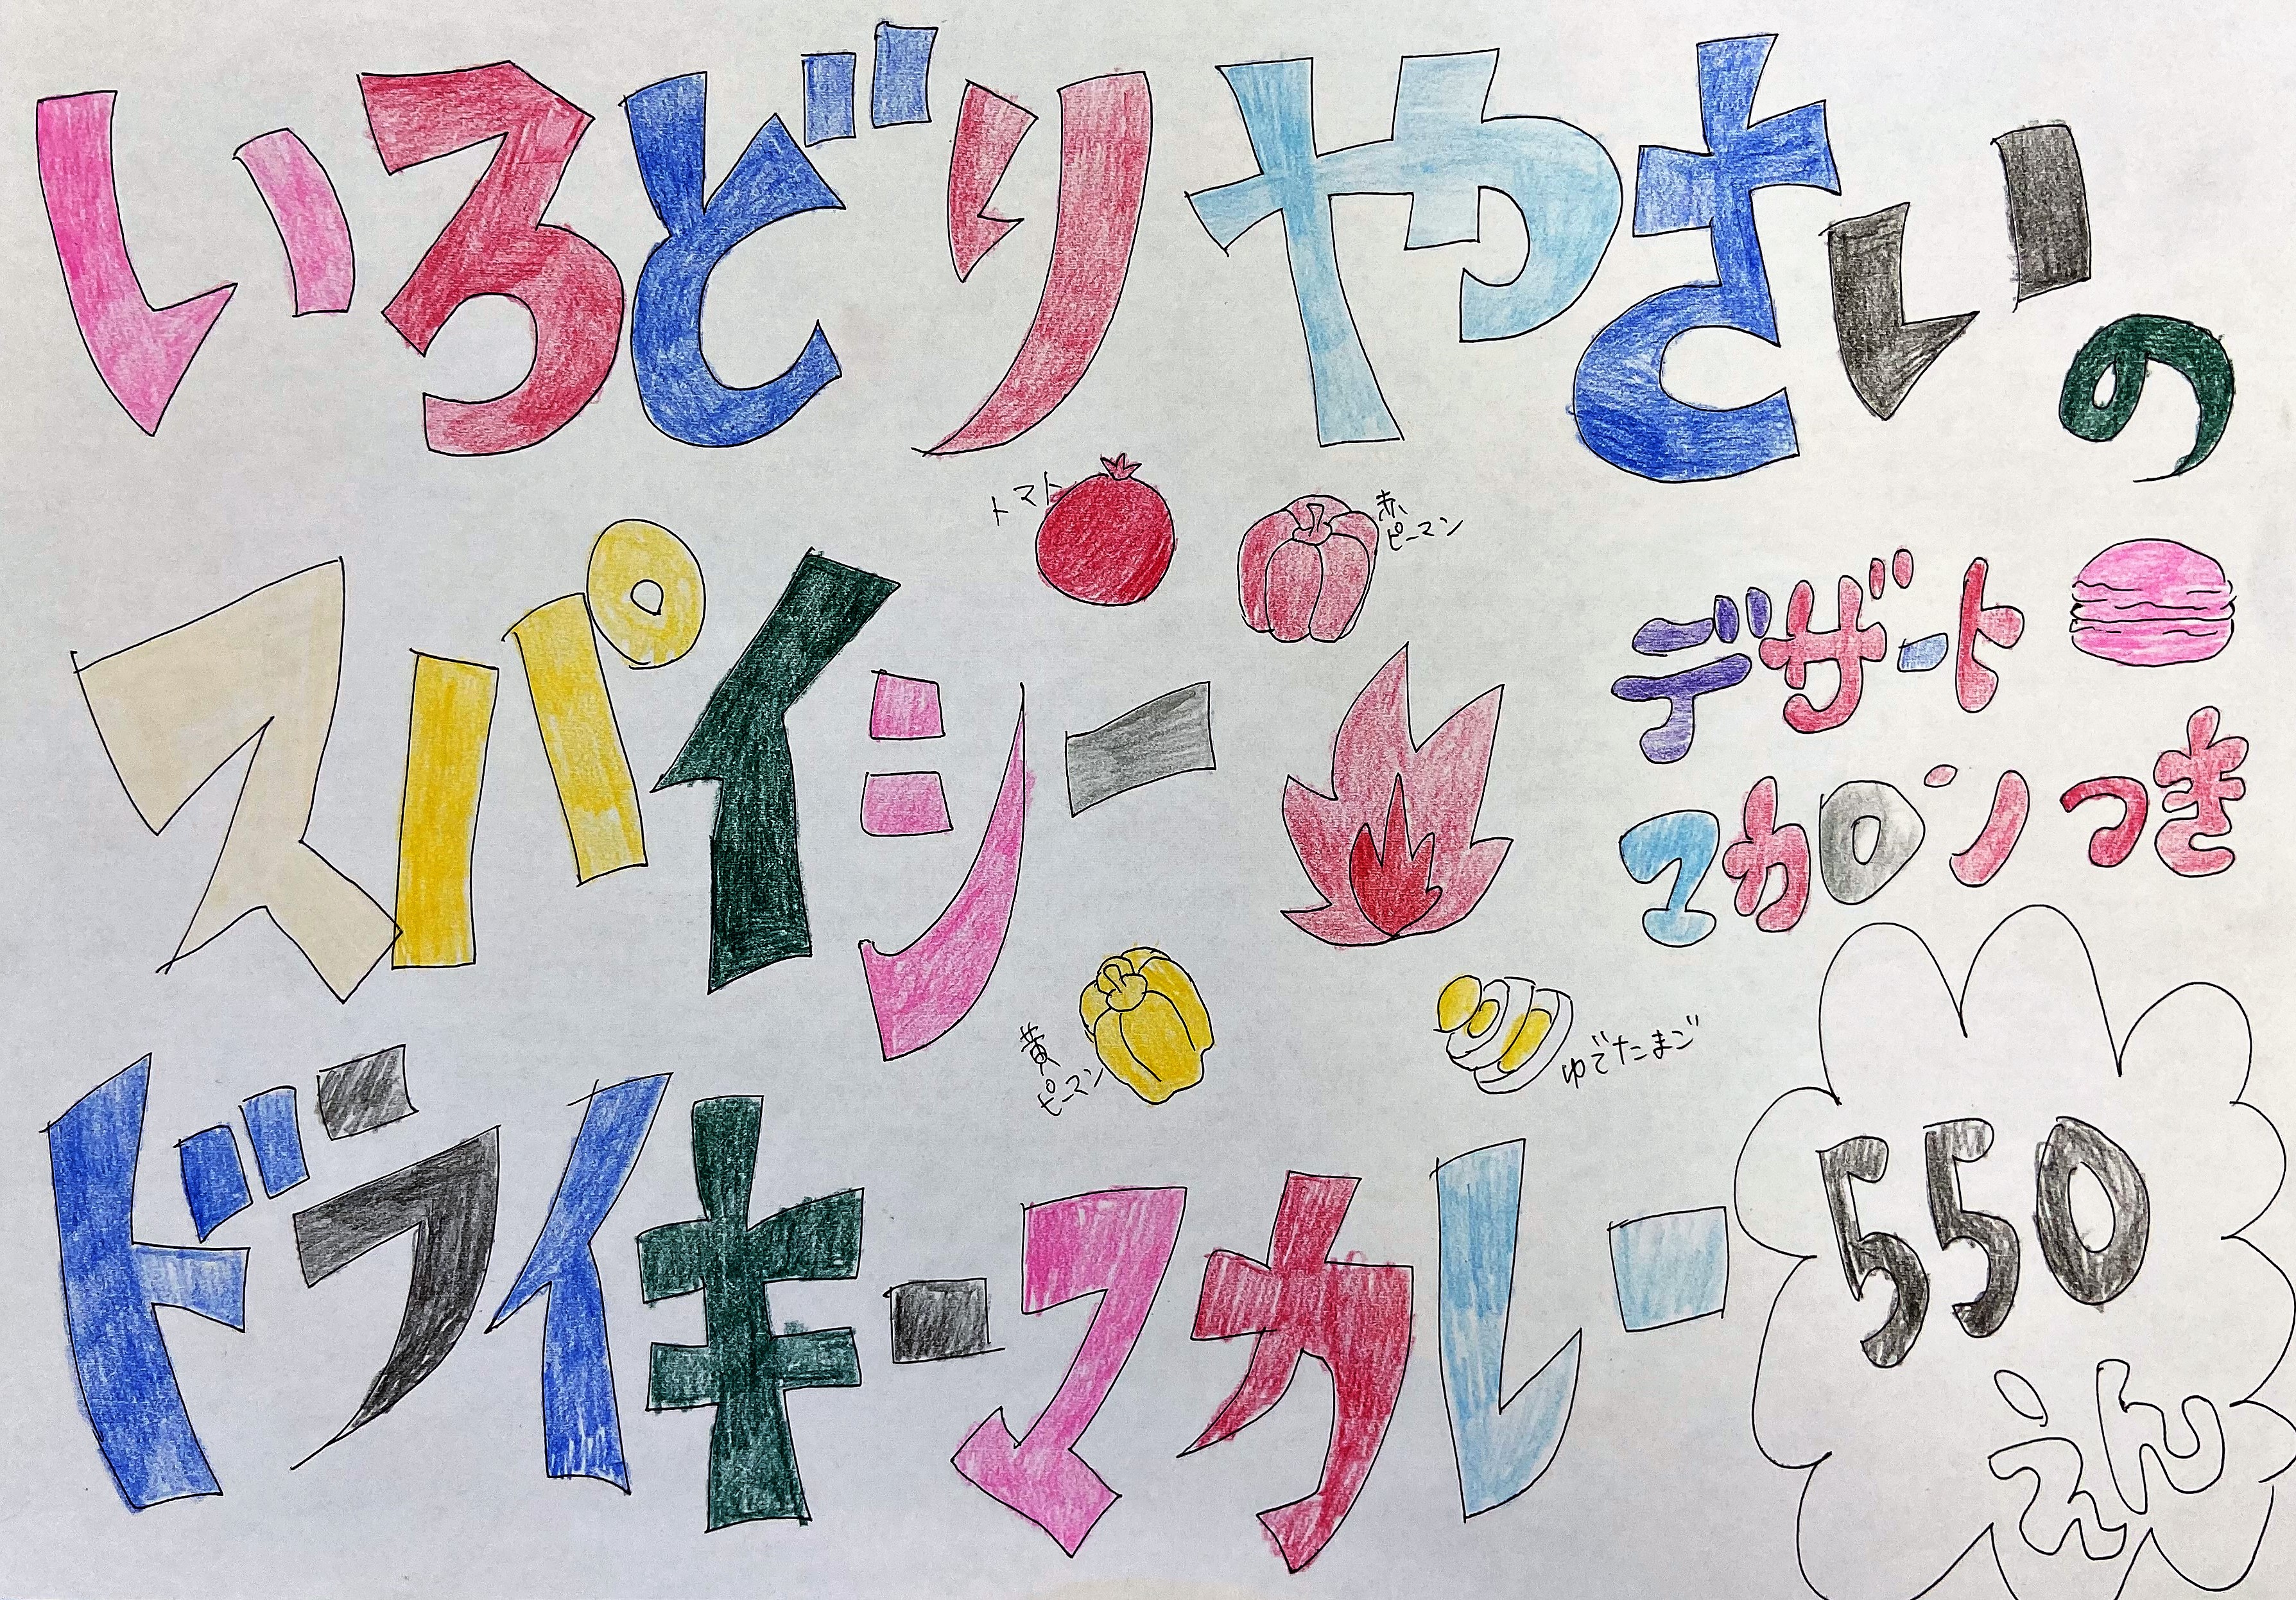 いろどりやさいの
トマト
赤
ピーマン
スパイシー
デザート
マカロンつき
黄
ピーマン
ゆでたまご
ドライキーマカレー
550
えん